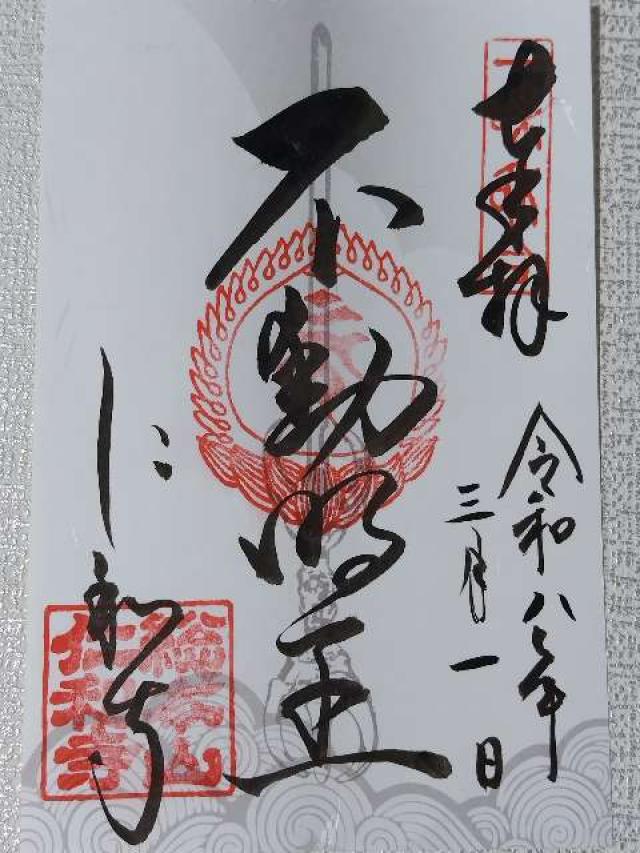 奉拝
令和八年
三月一日
不動明王
仁和寺
仁和寺